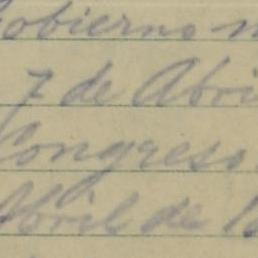 Gobierno
7 de Abri
Congreso
Abril de 1